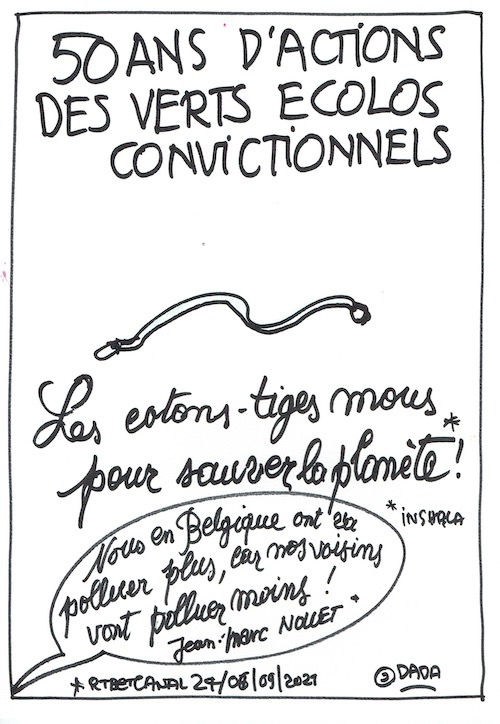 50 ANS D'ACTIONS
DES VERTS ECOLOS
CONVICTIONNELS
Les cotons-tiges mous
pour sauver la planète*!
* INSHALA
Nous en Belgique ont va
polluer plus, car nos voisins
vont polluer moins !
Jean-Marc NOLLET *
* RTBETCANAL 27/08/09/2021
DADA